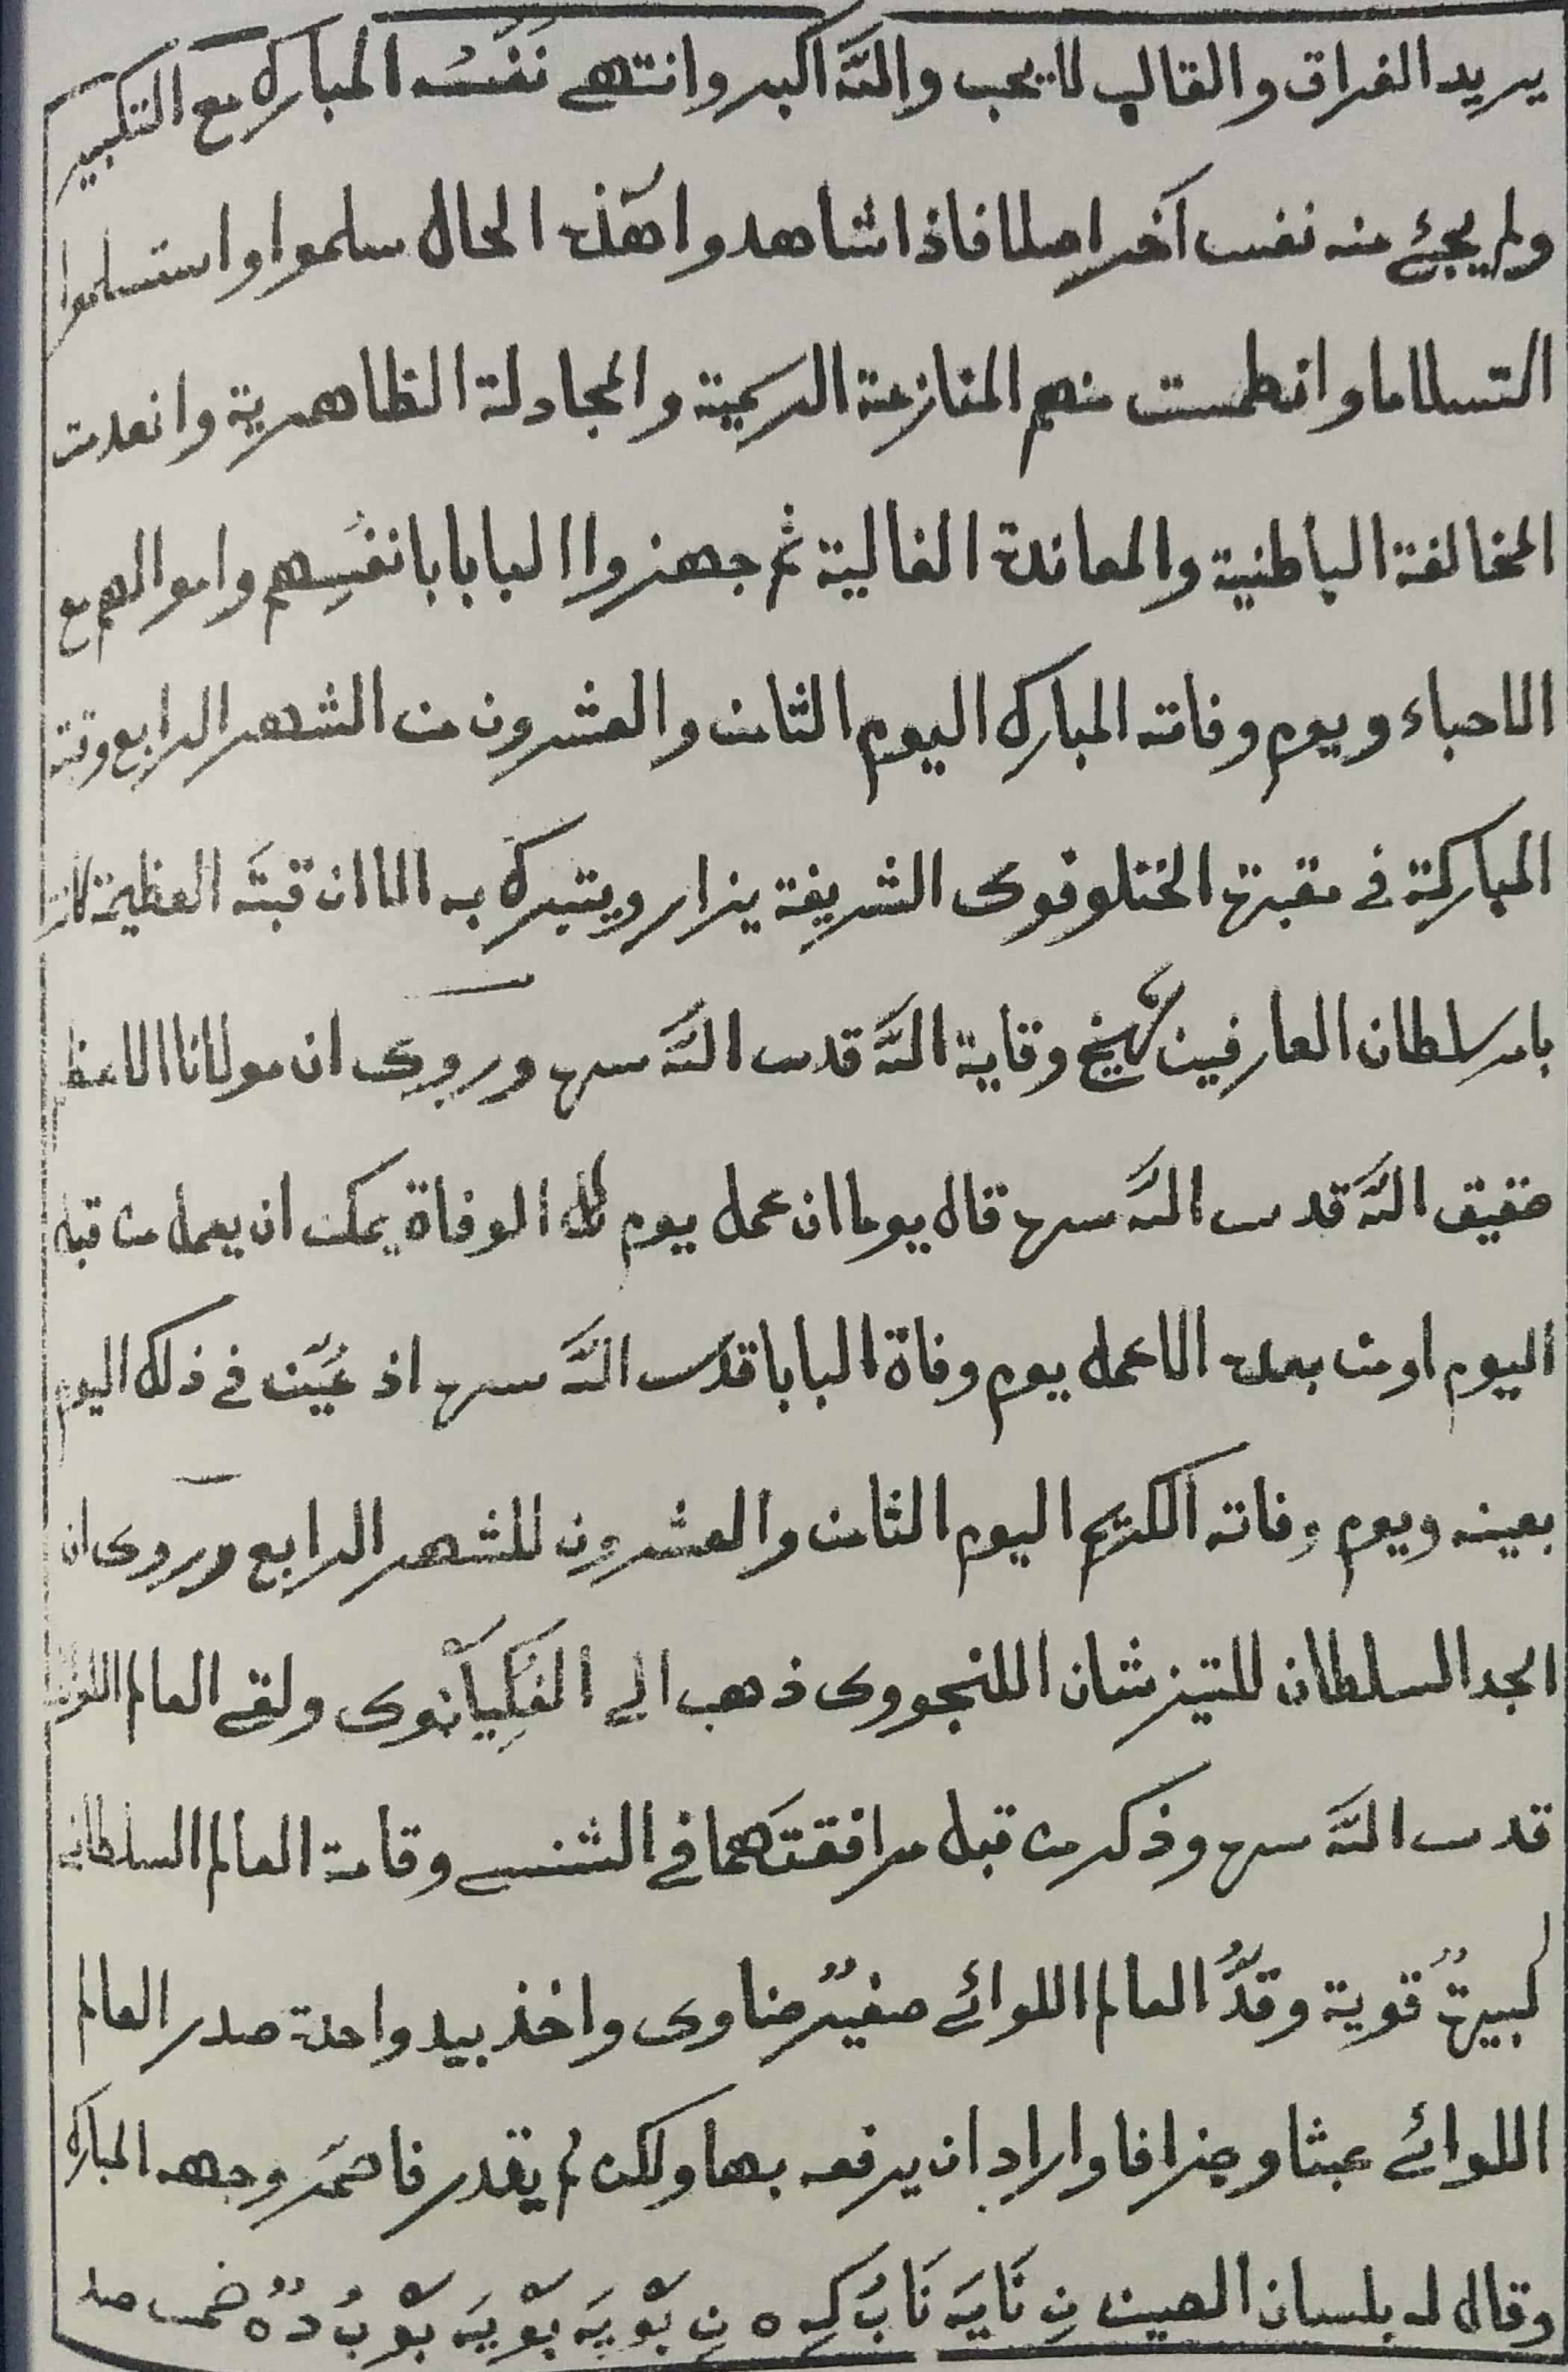 يريد الفراق والقالب لا يحب والله اكبر وانتهى نَفَسُه المبارك مع التكبير
ولم يجئ منه نفس آخر اصلا فاذا شاهدوا هذه الحال سلموا واستسلموا
التسلاما وانطمست منهم المنازعة الرسمية والمجادلة الظاهرية وانعدمت
المخالفة الباطنية والمعاندة الغالبة ثم جهزوا البابا بانفسِهم واموالهم مع
الاحباء ويوم وفاته المبارك اليوم الثامن والعشرون من الشهر الرابع وقبته
المباركة في مقبرة الخنلوقوى الشريفة يزار ويتبرك به الا ان قبته العظيمة كانت
بامر سلطان العارفين شيخ وقاية الله قدس الله سره وروى ان مولانا الاعظم
حقيق الله قدس الله سره قال يوما ان عمل يوم الوفاة يمكن ان يعمل من قبل
اليوم او من بعده الا عمل يوم وفاة البابا قدس الله سره اذ عُيّن في ذلك اليوم
بعينه ويوم وفاته الكريم اليوم الثامن والعشرون للشهر الرابع وروى ان
الجد السلطان للتيزشان اللنجووى ذهب الى الفكيانوى ولقى العالم اللوائى
قدس الله سره وذكر من قبل مرافقتَهما في الشنسى وقامة العالم السلطانى
كبيرةٌ قوية وقدُّ العالم اللوائى صغيرٌ ضاوى واخذ بيد واحدة صدر العالم
اللوائى عبثا وجزافا واراد ان يرفعه بها ولكن لم يقدر فاحمَر وجهه المبارك
وقال له بلسان الصين نِ نَايَه نَابُ كِه ه نِ بْوْيَه بْوْيَه بْوْ بُ دْ ه